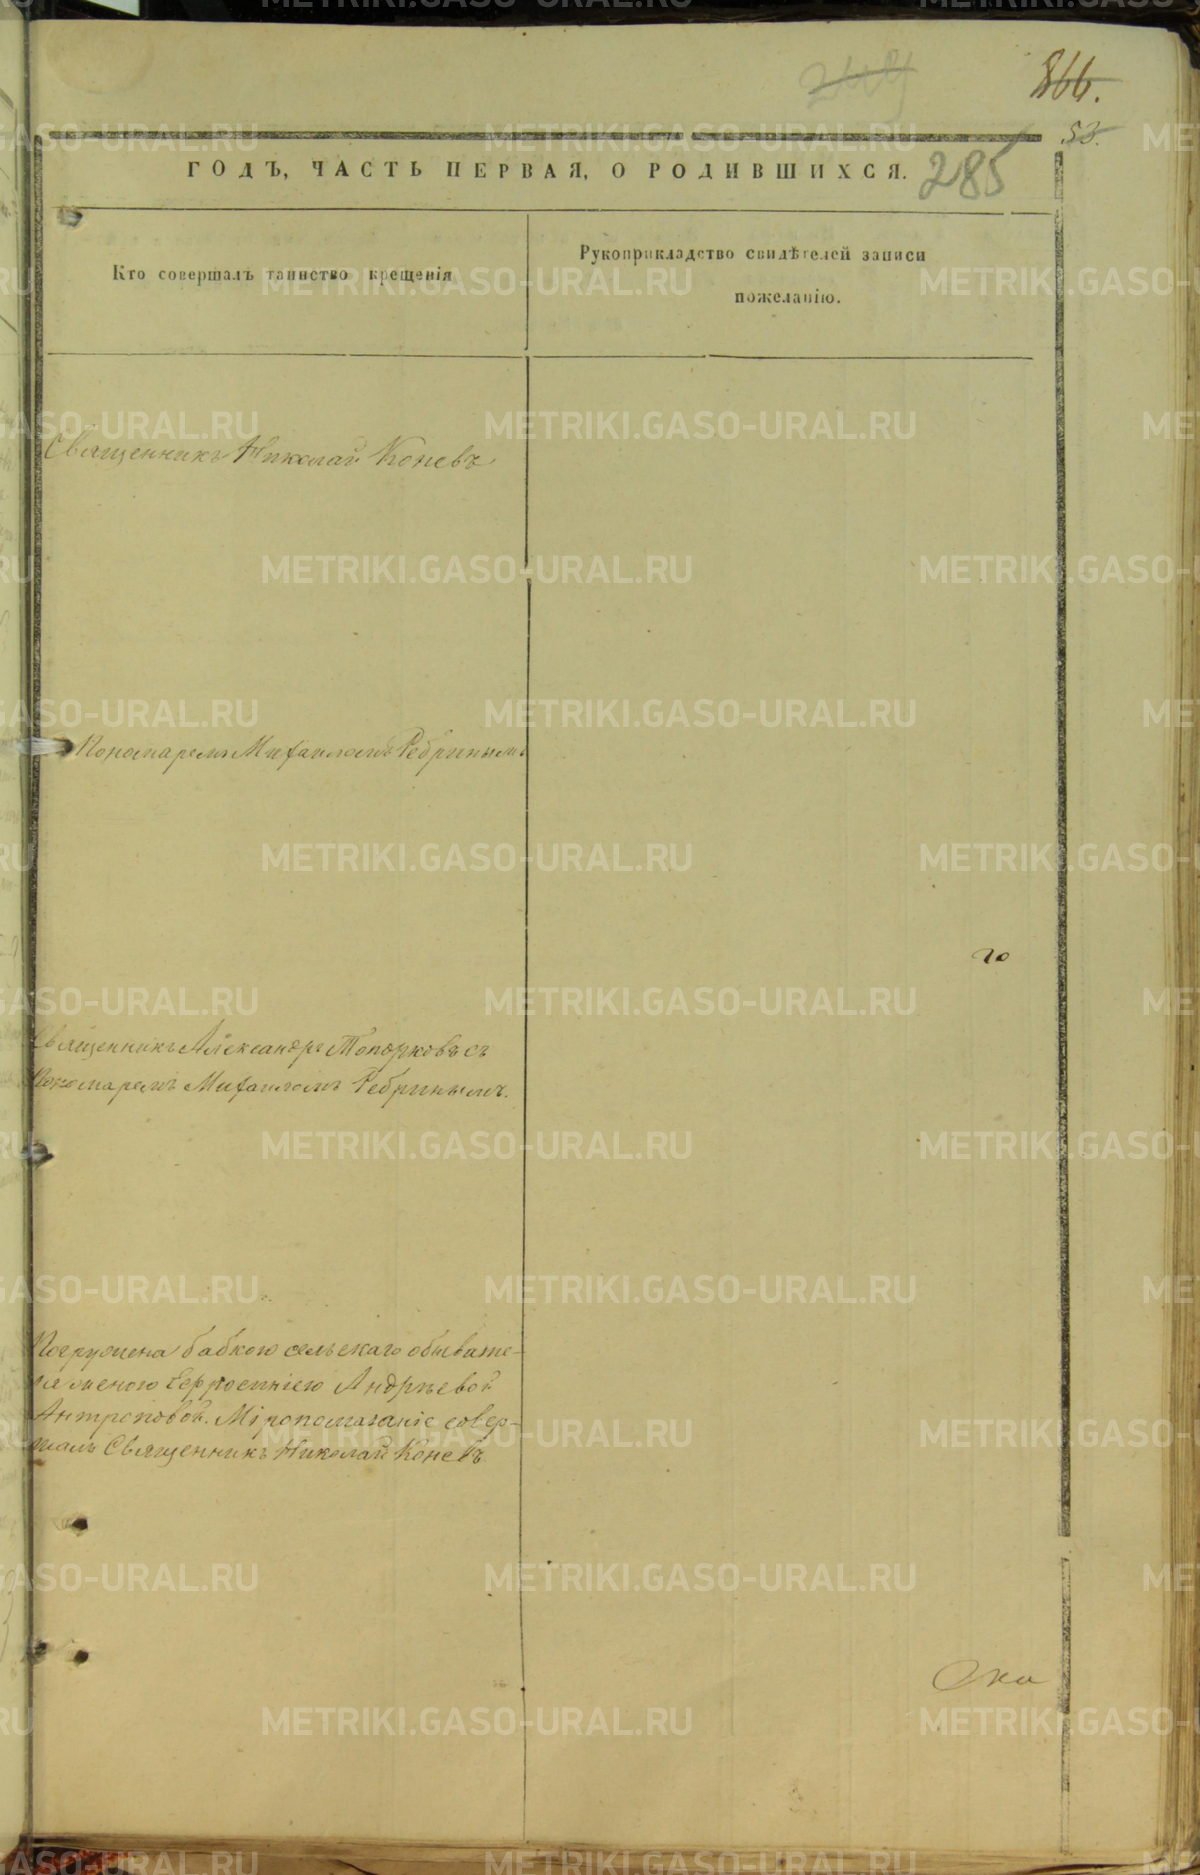 249
866.
53.
ГОДЪ, ЧАСТЬ ПЕРВАЯ, О РОДИВШИХСЯ.
285
Кто совершалъ таинство крещенія
Рукоприкладство свидѣтелей записи
пожеланію.
Священникъ Николай Коневъ
Пономаремъ Михаиломъ Ребринымъ
го
Священникъ Александръ Топорковъ съ
Пономаремъ Михаиломъ Ребринымъ.
Погружена бабкою сельскаго обывате-
ля женою Андреевой
Антроповой. Мѵропомазаніе совер-
шалъ Священникъ Николай Коневъ
METRIKI.GASO-URAL.RU